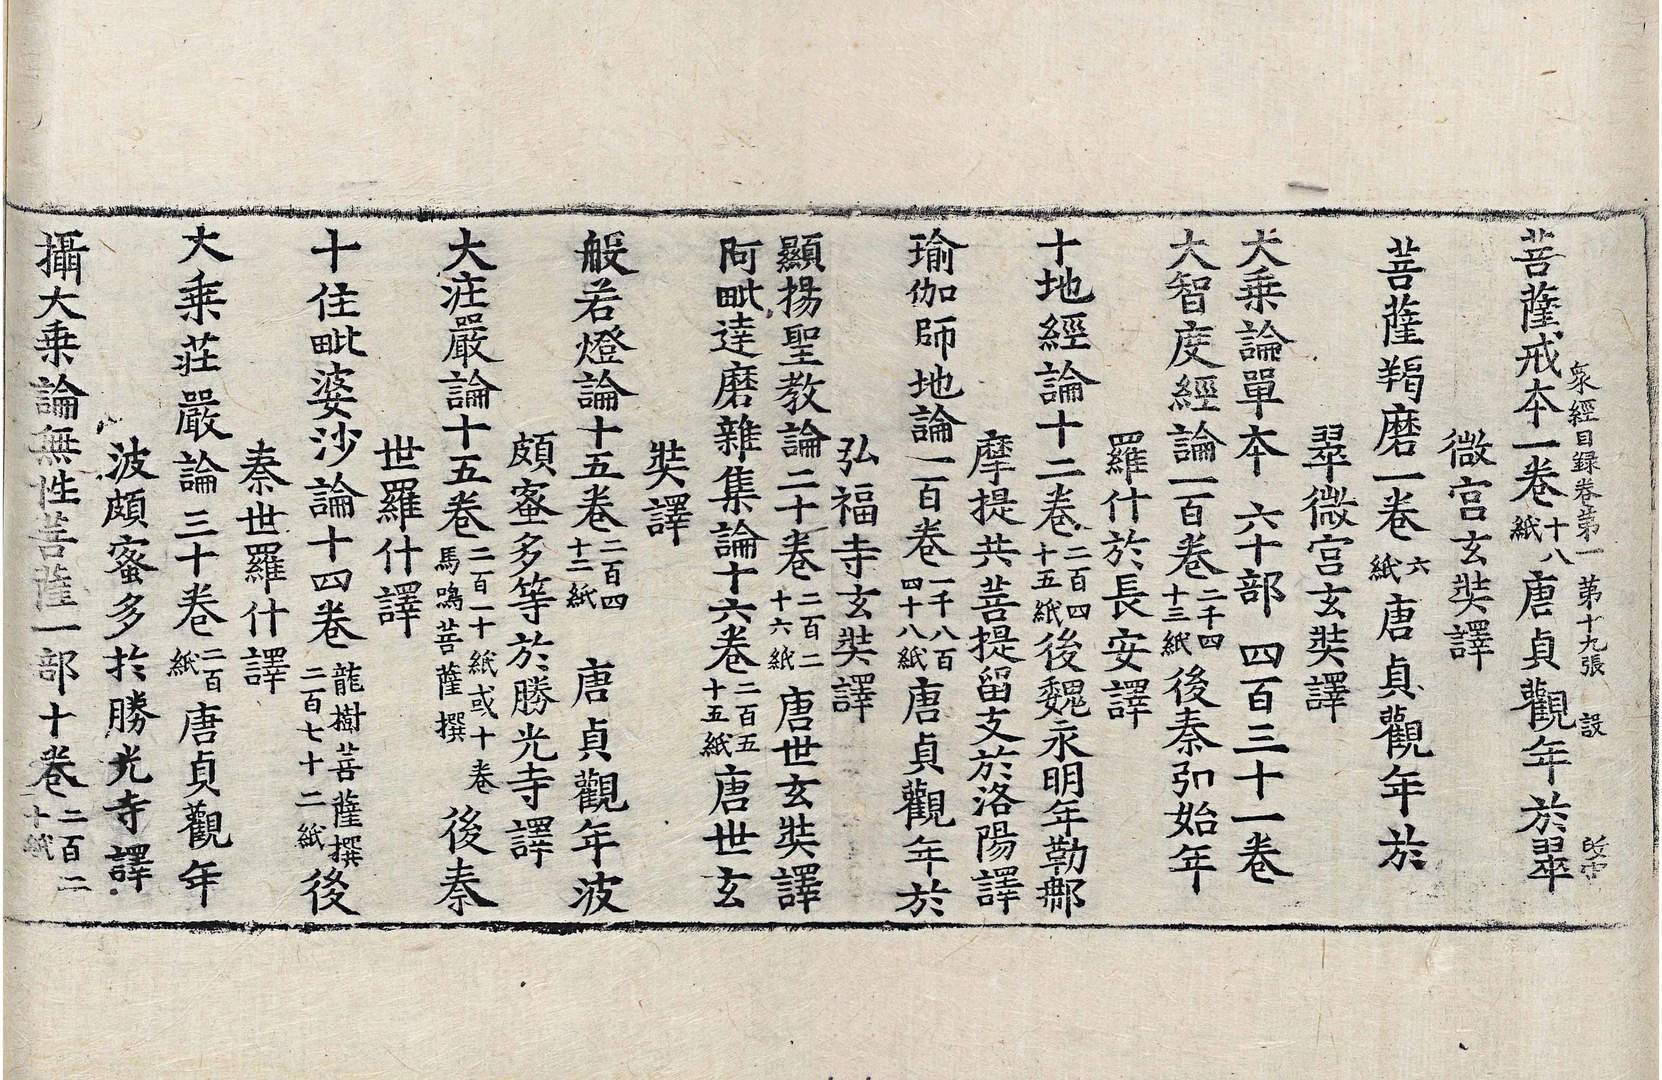 衆經目録卷第一 第十九張 設
菩薩戒本一卷十八紙唐貞觀年於翠
微宫玄奘譯
菩薩羯磨一卷六紙唐貞觀年於
翠微宫玄奘譯
大乗論單本 六十部 四百三十一卷
大智度經論一百卷二千四十三紙後秦弘始年
羅什於長安譯
十地經論十二卷二百四十五紙後魏永明年勒那
摩提共菩提留支於洛陽譯
瑜伽師地論一百卷一千八百四十八紙唐貞觀年於
弘福寺玄奘譯
顯揚聖教論二十卷二百二十六紙唐世玄奘譯
阿毗達磨雜集論十六卷二百五十五紙唐世玄
奘譯
般若燈論十五卷二百四十二紙 唐貞觀年波
頗蜜多等於勝光寺譯
大莊嚴論十五卷二百一十紙或十卷馬鳴菩薩撰後秦
世羅什譯
十住毗婆沙論十四卷龍樹菩薩撰二百七十二紙後
秦世羅什譯
大乗莊嚴論三十卷二百紙唐貞觀年
波頗蜜多於勝光寺譯
攝大乗論無性菩薩一部十卷二百二十紙